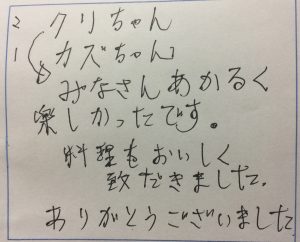 2 クリちゃん
1 カズちゃん
みなさんあかるく
楽しかったです。
料理もおいしく
致だきました.
ありがとうございました